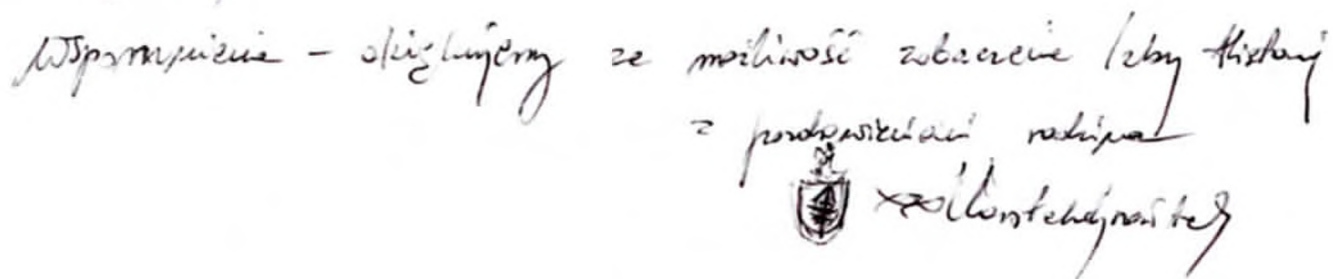 Wspomnienie - dziękujemy za możliwość zobaczenia Izby Historii
z pozdrowieniami rodzina